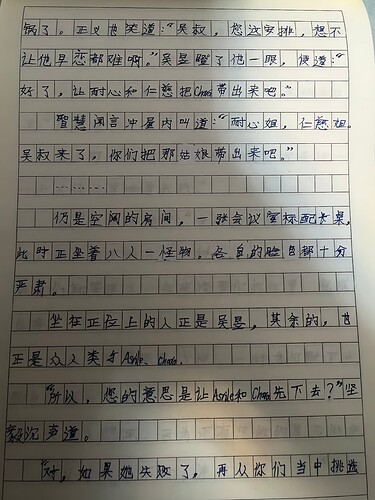 锅了。正义也笑道：“吴叔，您这安排，想不
让他早恋都难啊。”吴昱瞪了他一眼，便道：“
好了，让耐心和仁慈把Chara带出来吧。”
智慧闻言冲屋内叫道：“耐心姐，仁慈姐。
吴叔来了，你们把那姑娘带出来吧。”
…………
仍是空阔的房间，一张会议室标配长桌，
此时正坐着八人一怪物。各自的脸色都十分
严肃。
坐在正位上的人正是吴昱，其余的，也
正是众人类与Asriel、Chara.
“所以，您的意思是让Asriel和Chara先下去？”坚
毅沉声道。
“对，如果她失败了，再从你们当中挑选